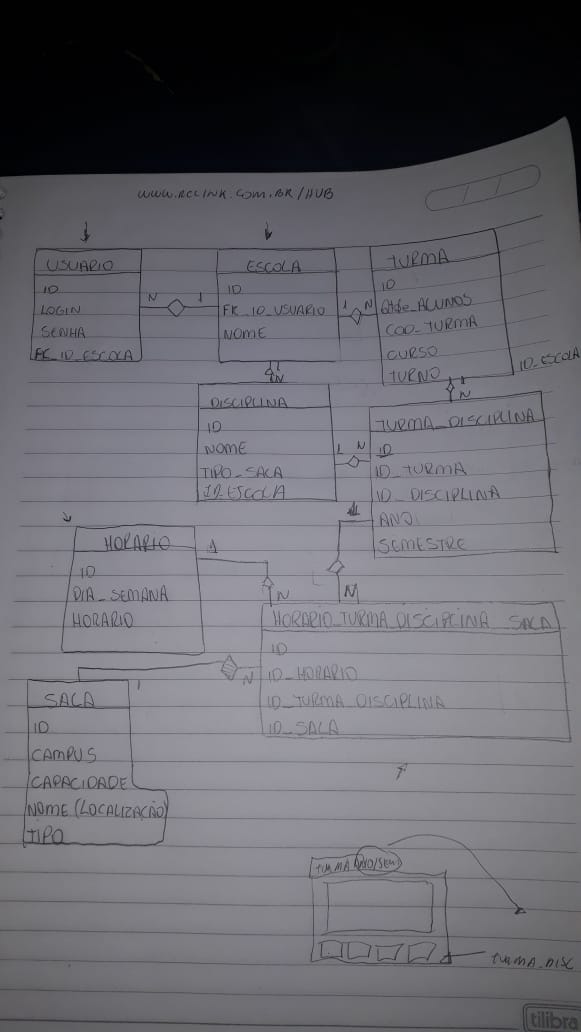 WWW.ACLINK.COM.BR/HUB
USUARIO
ID
LOGIN
SENHA
FK_ID_ESCOLA
N
1
ESCOLA
ID
FK_ID_USUARIO
NOME
1
N
TURMA
ID
Qtde_ALUNOS
COD_TURMA
CURSO
TURNO
ID_ESCOLA
N
N
DISCIPLINA
ID
NOME
TIPO_SALA
ID_ESCOLA
1
N
TURMA_DISCIPLINA
ID
ID_TURMA
ID_DISCIPLINA
ANO
SEMESTRE
HORARIO
ID
DIA_SEMANA
HORARIO
1
N
1
N
HORARIO_TURMA_DISCIPLINA_SALA
ID
ID_HORARIO
ID_TURMA_DISCIPLINA
ID_SALA
1
N
SALA
ID
CAMPUS
CAPACIDADE
NOME (LOCALIZAÇÃO)
TIPO
TURMA ANO/SEM
TURMA_DISC
tilibra